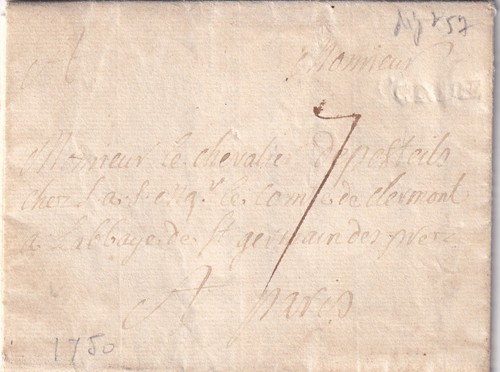 A
Monsieur
7
Monsieur le chevalier
chez S a S Mgr le Comte de clermont
a Labbaye de St germain des prez
A paris
1750